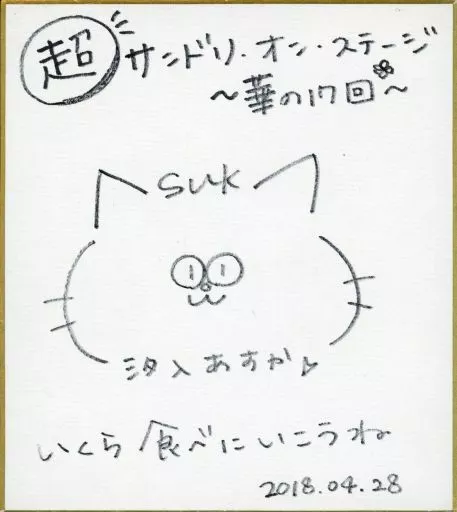 超 サンドリ・オン・ステージ
～華の17回～
suk
汐入あすか
いくら食べにいこうね
2018.04.28